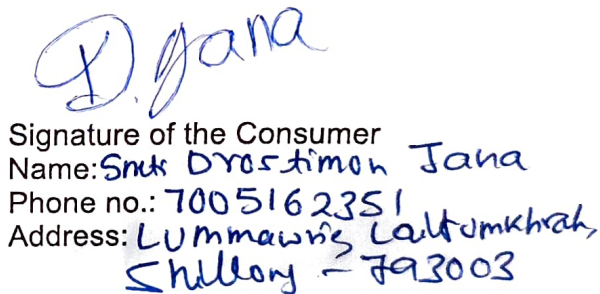 D. Jana
Signature of the Consumer
Name: Smti Drostimon Jana
Phone no.: 7005162351
Address: Lummawrie Laitumkhrah,
Shillong - 793003